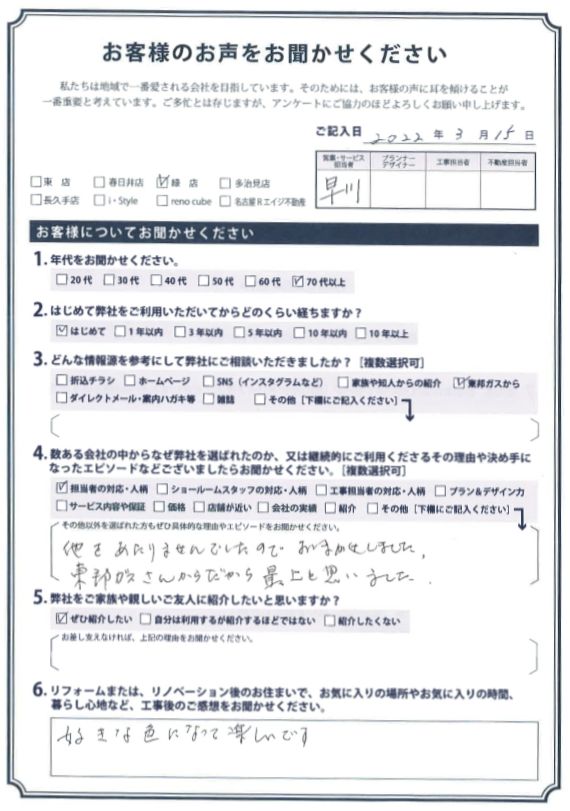 お客様のお声をお聞かせください
私たちは地域で一番愛される会社を目指しています。そのためには、お客様の声に耳を傾けることが
一番重要と考えています。ご多忙とは存じますが、アンケートにご協力のほどよろしくお願い申し上げます。
ご記入日 2022 年 3 月 15 日
営業・サービス担当者 プランナーデザイナー 工事担当者 不動産担当者
早川
□東 店 □春日井店 ☑緑 店 □多治見店
□長久手店 □i・Style □reno cube □名古屋Rエイジ不動産
お客様についてお聞かせください
1. 年代をお聞かせください。
□20代 □30代 □40代 □50代 □60代 ☑70代以上
2. はじめて弊社をご利用いただいてからどのくらい経ちますか？
☑はじめて □1年以内 □3年以内 □5年以内 □10年以内 □10年以上
3. どんな情報源を参考にして弊社にご相談いただきましたか？［複数選択可］
□折込チラシ □ホームページ □SNS（インスタグラムなど） □家族や知人からの紹介 ☑東邦ガスから
□ダイレクトメール・案内ハガキ等 □雑誌 □その他［下欄にご記入ください］
4. 数ある会社の中からなぜ弊社を選ばれたのか、又は継続的にご利用くださるその理由や決め手に
なったエピソードなどございましたらお聞かせください。［複数選択可］
☑担当者の対応・人柄 □ショールームスタッフの対応・人柄 □工事担当者の対応・人柄 □プラン&デザイン力
□サービス内容や保証 □価格 □店舗が近い □会社の実績 □紹介 □その他［下欄にご記入ください］
その他以外を選ばれた方もぜひ具体的な理由やエピソードをお聞かせください。
他をあたりませんでしたので おまかせしました。
東邦ガスさんからだから 最上と思いました.
5. 弊社をご家族や親しいご友人に紹介したいと思いますか？
☑ぜひ紹介したい □自分は利用するが紹介するほどではない □紹介したくない
お差し支えなければ、上記の理由をお聞かせください。
6. リフォームまたは、リノベーション後のお住まいで、お気に入りの場所やお気に入りの時間、
暮らし心地など、工事後のご感想をお聞かせください。
好きな色になって楽しいです